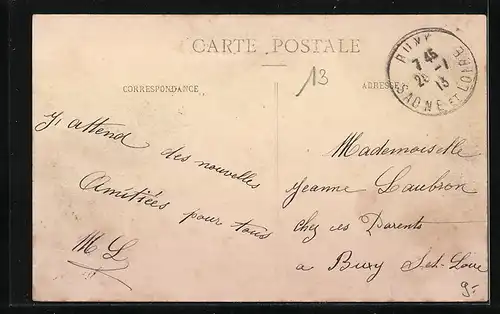 CARTE POSTALE
CORRESPONDANCE
ADRESSE
13
BUXY
7 45
26 - 1
13
SAONE ET LOIRE
J'attend des nouvelles
Amitiées pour tous
M L
Mademoiselle
Jeanne Laubron
chez ses Parents
a Buxy S.et.Loire
9-